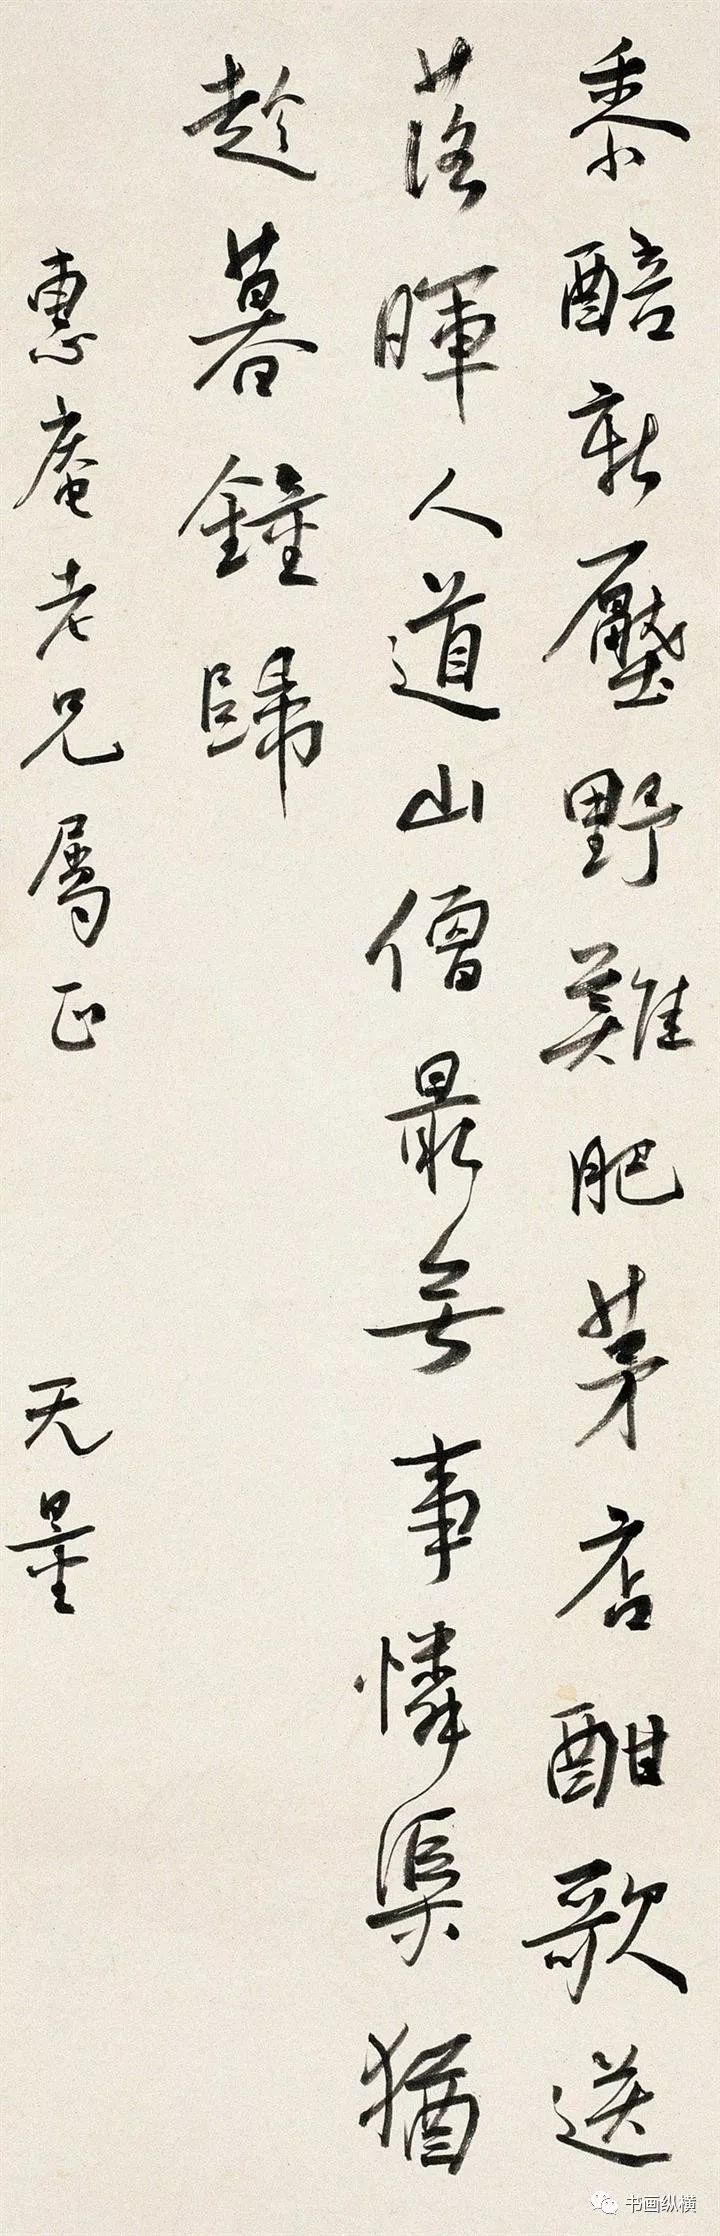 黍醅新壓野雞肥茅店酣歌送
落暉人道山僧最無事憐渠猶
趁暮鐘歸
惠庵老兄屬正
无量
书画纵横